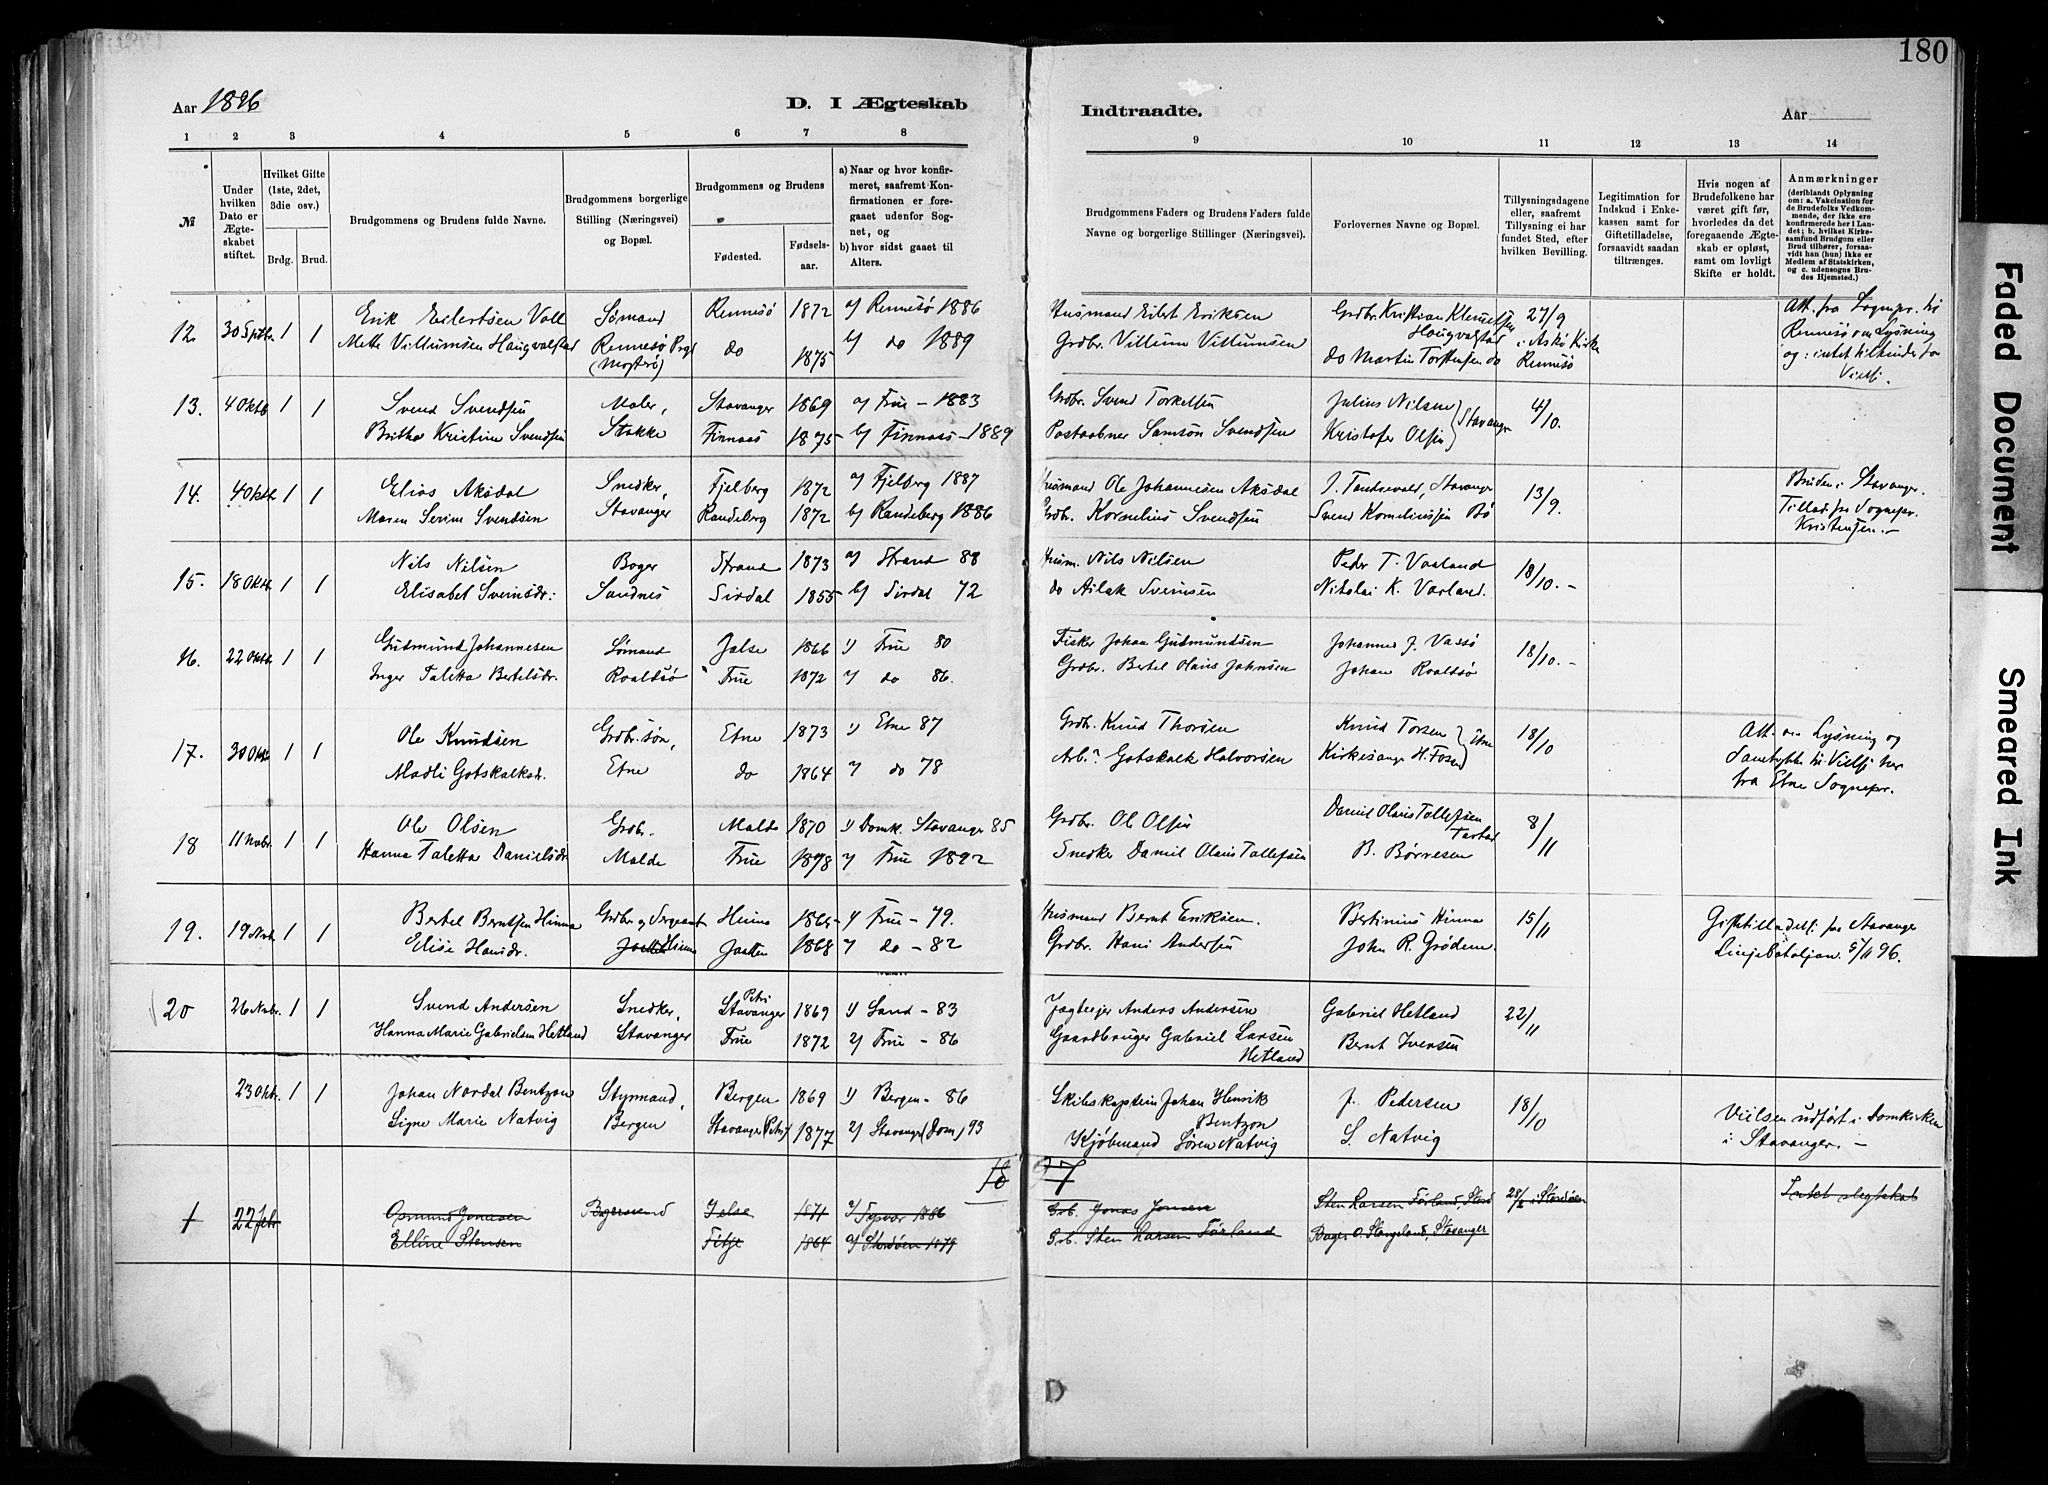 180
Aar 1896
D. I Ægteskab
Indtraadte.
Aar
1 2 3 4 5 6 7 8
9 10 11 12 13 14
№
Under hvilken Dato er Ægteskabet stiftet.
Hvilket Gifte (1ste, 2det, 3die osv.)
Brdg. Brud.
Brudgommens og Brudens fulde Navne.
Brudgommens borgerlige Stilling (Næringsvei) og Bopæl.
Brudgommens og Brudens
Fødested. Fødselsaar.
a) Naar og hvor konfirmeret, saafremt Konfirmationen er foregaaet udenfor Sognet, og
b) hvor sidst gaaet til Alters.
Brudgommens Faders og Brudens Faders fulde Navne og borgerlige Stillinger (Næringsvei).
Forlovernes Navne og Bopæl.
Tillysningsdagene eller, saafremt Tillysning ei har fundet Sted, efter hvilken Bevilling.
Legitimation for Indskud i Enkekassen samt for Giftetilladelse, forsaavidt saadan tiltrænges.
Hvis nogen af Brudefolkene har været gift før, hvorledes da det foregaaende Ægteskab er opløst, samt om lovligt Skifte er holdt.
Anmærkninger
(deriblandt Oplysning om: a. Vakcination for de Brudefolks Vedkommende, der ikke ere konfirmerede her i Landet; b. hvilket Kirkesamfund Brudgom eller Brud tilhører, forsaavidt han (hun) ikke er Medlem af Statskirken, og c. udensogns Brudes Hjemsted.)
12. 30 Sptbr. 1 1 Erik Eilertsen Voll Sømand Rennesø 1872 a) Rennesø 1886 Husmand Eilert Eriksen Grdbr. Kristian Klemetsen Haugvalstad 27/9 i Askø Kirke Rennesø
Mette Villumsen Haugvalstad Rennesø Prgj (Mosterø) do 1875 b) do 1889 Grdbr. Villum Villumsen do Martin Torstensen do
Att. fra Sognepr. til Rennesø om Lysning og: intet til hinder for Vielse.
13. 4 Oktb 1 1 Svend Svendsen Maler, Stavanger 1869 a) Frue - 1883 Grdbr. Svend Torkelsen Julius Nilsen } Stavanger 4/10.
Britha Kristine Svendsen Stokke Finnaas 1875 b) Finnaas - 1889 Postaabner Samson Svendsen Kristofer Olsen
14. 4 Oktb. 1 1 Elias Aksdal Snedker, Fjelberg 1872 a) Fjelberg 1887 Husmand Ole Johannesen Aksdal Stavanger 13/9.
Maren Serine Svendsen Stavanger Randeberg 1872 b) Randeberg 1886 Grdbr. Kornelius Svendsen Svend Korneliussen Bø
Bruden i Stavanger. Tillad. fra Sognepr. Kristensen.-
15. 18 Oktb. 1 1 Nils Nilsen Bager Strand 1873 a) Strand 88 Husm. Nils Nilsen Peder T. Vaaland 18/10.-
Elisabet Sveinsdr: Sandnes Sirdal 1855 b) Sirdal 72 do Ailak Sveinsen Nikolai K. Varland.
16. 22 Oktb. 1 1 Gudmund Johannesen Sømand Jelse 1866 1) Frue 80 Fisker Johan Gudmundsen Johannes J. Vassø 18/10.-
Inger Taletta Bertelsdr. Roaldsø Frue 1872 2) do 86. Grdbr. Bertel Olaus Johnsen Johan Roaldsø
17. 30 Oktb. 1 1 Ole Knudsen Grdbr. søn, Etne 1873 1) Etne 87 Grdb. Knud Thorsen Knud Torsen } Etne 18/10
Madli Gotskalksdr. Etne do 1864 2) do 78 Arb. Gotskalk Halvorsen Kirkesanger H. Fosen
Att. om Lysning og Samtykke til Vielse her fra Etne Sognepr.
18 11 Nvbr. 1 1 Ole Olsen Grdb. Malde 1870 1) Domk. Stavanger 85 Grdbr. Ole Olsen Daniel Olaus Tollefsen Tastad 8/11
Hanna Taletta Danielsdr. Malde Frue 1878 2) Frue 1892 Snedker Daniel Olaus Tollefsen B. Børresen
19. 19 Nvb. 1 1 Bertel Berntsen Hinna Grdbr. og Sergeant Hinna 1865 1) Frue - 79. Husmand Bernt Eriksen. Bertinius Hinna 15/11
Elise Hansdr. Jaatten Hinna Jaatten 1868 2) do - 82 Grdbr. Hans Andersen John R. Grødem.
Giftetilladelse fra Stavanger Linjebataljon 5/11 96.
20 26 Nvbr. 1 1 Svend Andersen Snedker, Petri Stavanger 1869 1) Sand - 83 Jægteejer Anders Andersen Gabriel Hetland 22/11
Hanna Marie Gabrielsen Hetland Stavanger Frue 1872 2) Frue - 86 Gaardbruger Gabriel Larsen Hetland Bernt Iversen
23 Okt. 1 1 Johan Nordal Bentzon Styrmand, Bergen 1869 1) Bergen - 86 Skibskaptein Johan Henrik Bentzon J. Pedersen 18/10
Signe Marie Natvig Bergen Stavanger (Petri) 1877 2) Stavanger (Dom) 93 Kjøbmand Søren Natvig S. Natvig
Vielsen udført i Domkirken i Stavanger. -
1 22 febr Osmund Jonesen Bagersvend Jelse 1871 1) Tysvær 1886 Grb. Jonas Jonsen Sten Larsen Førland, Stord 28/2 i Stordøen Intet slegtskab
Elline Stensen Fitje 1864 2) Stordøen 1879 Grb. Sten Larsen Førland Bager O. Stangeland, Stavanger
D
Faded Document
Smeared Ink